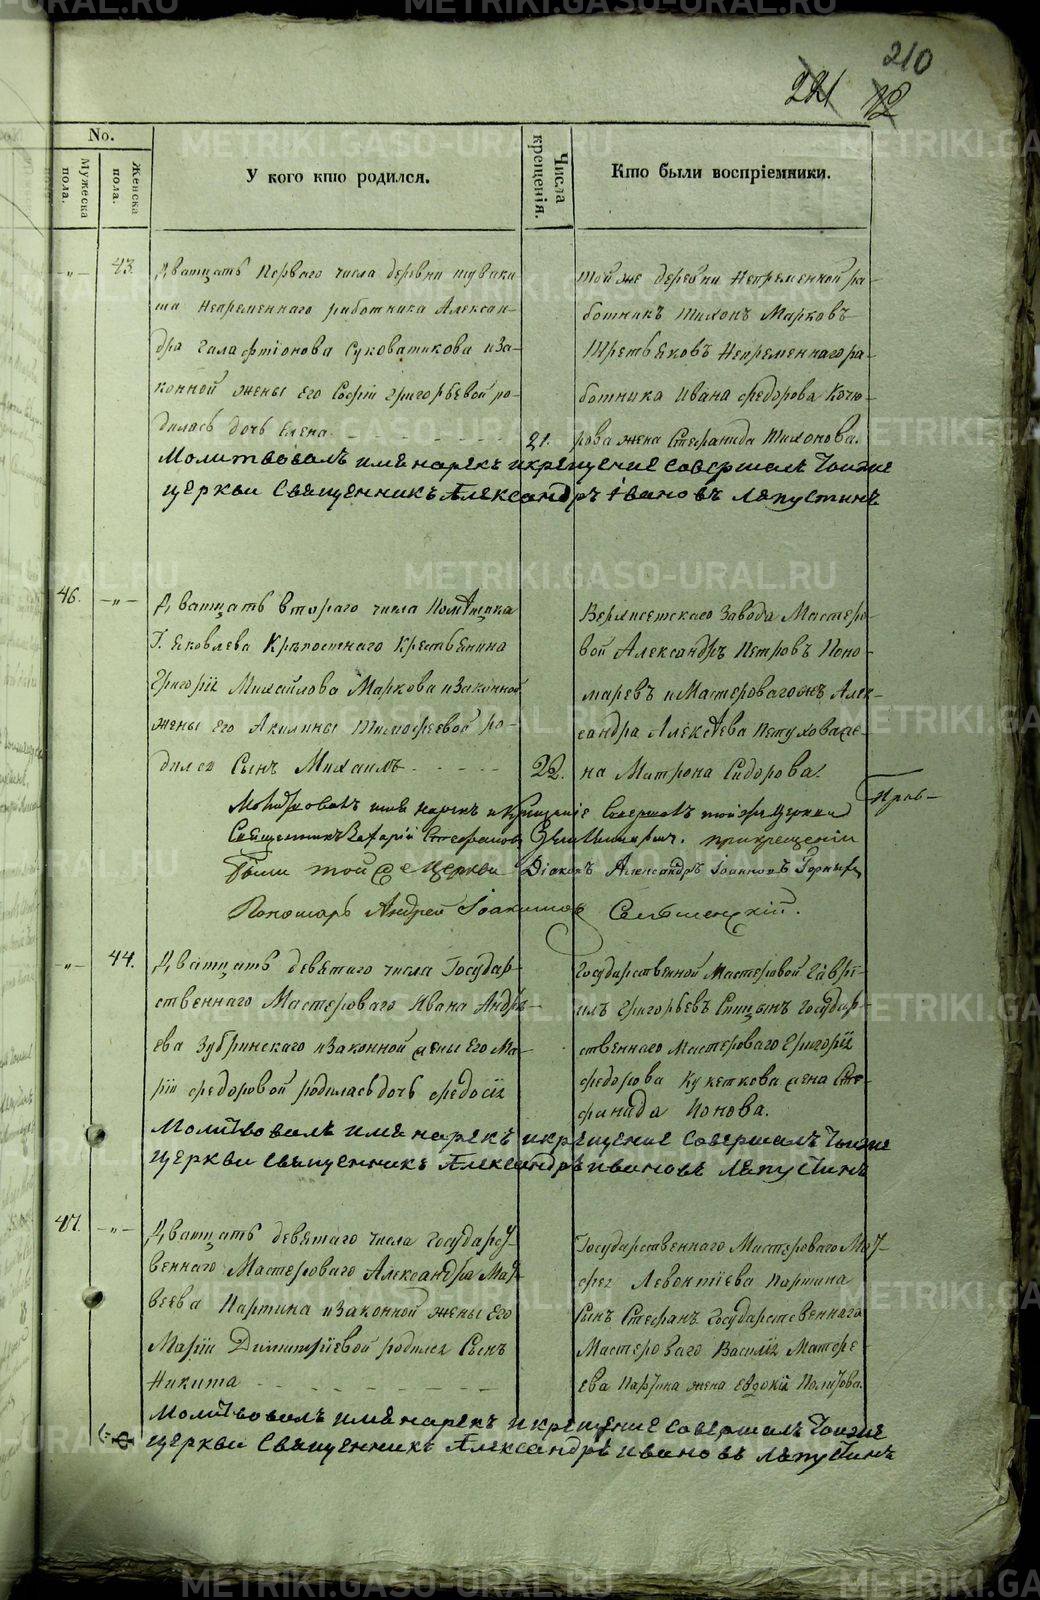 210
221 12
No.
Мужеска пола.
Женска пола.
У кого кто родился.
Числа крещенія.
Кто были воспріемники.
43.
Дватцать Перваго числа деревни
та Непременнаго работника Алексан-
дра Галафтіонова Суковатикова и за-
конной жены его Софіи Григорьевой ро-
дилась дочь Елена
21.
той же деревни Непременной ра-
ботникъ Тихонъ Марковъ
Третьяковъ Непременнаго ра-
ботника Ивана Федорова Кочю-
рова жена Стефанида Тихонова.
Молитвовалъ имя нарекъ и крещение совершалъ тоиже
церкви Священникъ Александръ Ивановъ Лапустинъ
46.
Дватцать втораго числа Помѣщика
Г. Яковлева Крѣпостнаго Крестьянина
Григоріи Михайлова Маркова и законной
жены его Акилины Тимофеевой ро-
дился Сынъ Михаилъ
22.
Верхисетскаго Завода Мастеро-
вой Александръ Петровъ Поно-
маревъ и Мастероваго жъ Алек-
сандра Алексѣева Петухова же-
на Матрона Сидорова.
Молитвовалъ имя нарекъ и Крещеніе Совершалъ тойже Церкви
Священникъ Захарій Стефановъ прикрещеніи
Были той же Церкви Діаконъ Александръ Іоанновъ Горныхъ
Пономарь Андрей Іоакимов
44.
Дватцать девятаго числа Государ-
ственнаго Мастероваго Ивана Андрѣ-
ева Зубринскаго и законной жены Его Ма-
ріи Федоровой родилась дочь Федосіи
Государственной Мастеровой Гаврі-
илъ Григорьевъ Спицынъ Государ-
ственнаго Мастероваго Григоріи
Федорова жена Сте-
фанида Іонова.
Молитвовалъ имя нарекъ и крещение совершалъ тоиже
церкви священникъ Александръ Ивановъ Лапустинъ
47.
Дватцать девятаго числа Государст-
веннаго Мастероваго Александра Мат-
веева Партина и законной жены Его
Маріи Димитріевой родился Сынъ
Никита
Государственнаго Мастероваго Мат-
фея Левонтіева Партина
Сынъ Стефанъ Государственнаго
Мастероваго Василіи Матфе-
ева Партина жена Евдокіи
Молитвовалъ имя нарекъ и крещение совершалъ тоиже
церкви Священникъ Александръ Ивановъ Лапустинъ
METRIKI.GASO-URAL.RU